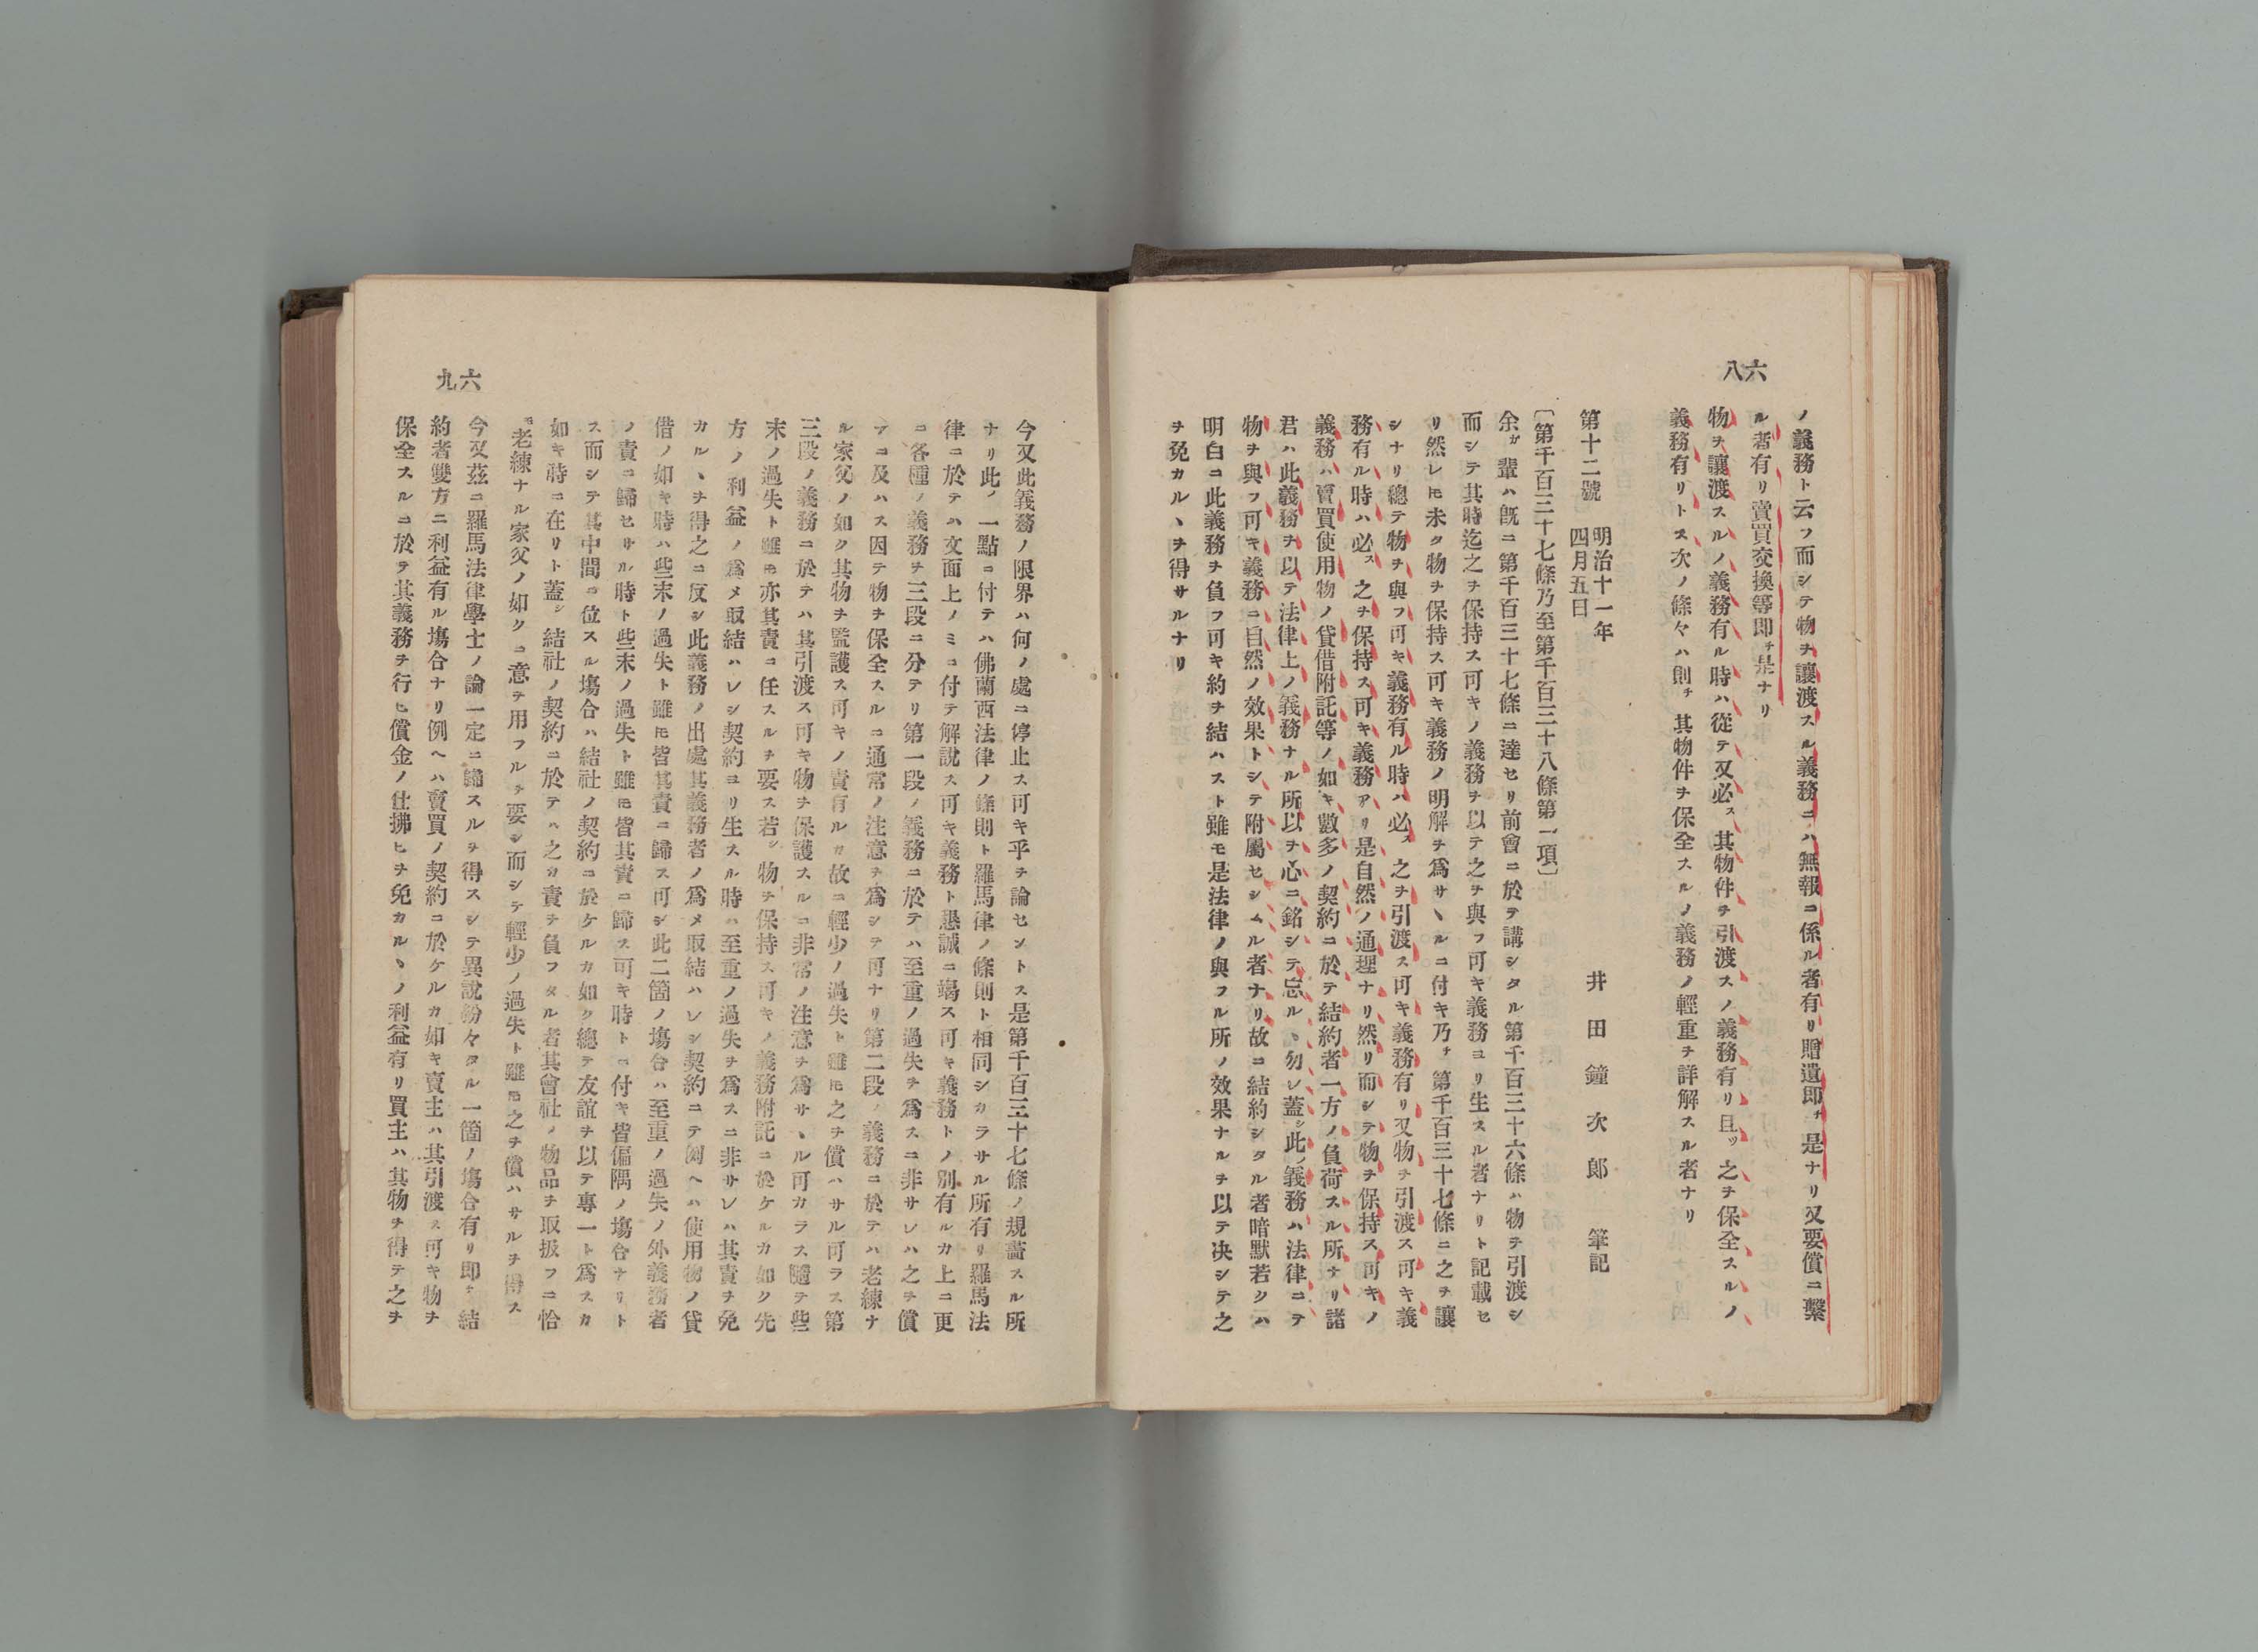 六八
ノ義務ト云フ而シテ物ヲ讓渡スル義務ニハ無報ニ係ル者有リ贈遺即チ是ナリ又要償ニ繫
ル者有リ賣買交換等即チ是ナリ
物ヲ讓渡スルノ義務有ル時ハ從テ又必ス其物件ヲ引渡スノ義務有リ且ツ之ヲ保全スルノ
義務有リトス次ノ條々ハ則チ其物件ヲ保全スルノ義務ノ輕重ヲ詳解スル者ナリ
第十二號 明治十一年四月五日 井田鐘次郎 筆記
〔第千百三十七條乃至第千百三十八條第一項〕
余カ輩ハ既ニ第千百三十七條ニ達セリ前會ニ於テ講シタル第千百三十六條ハ物ヲ引渡シ
而シテ其時迄之ヲ保持ス可キノ義務ヲ以テ之ヲ與フ可キ義務ヨリ生スル者ナリト記載セ
リ然レ𪜈未タ物ヲ保持ス可キ義務ノ明解ヲ爲サヽルニ付キ乃チ第千百三十七條ニ之ヲ讓
シナリ總テ物ヲ與フ可キ義務有ル時ハ必ス之ヲ引渡ス可キ義務有リ又物ヲ引渡ス可キ義
務有ル時ハ必ス之ヲ保持ス可キ義務アリ是自然ノ通理ナリ然リ而シテ物ヲ保持ス可キノ
義務ハ賣買使用物ノ貸借附託等ノ如キ數多ノ契約ニ於テ結約者一方ノ負荷スル所ナリ諸
君ハ此義務ヲ以テ法律上ノ義務ナル所以ヲ心ニ銘シテ忘ルヽ勿レ蓋シ此ノ義務ハ法律ニテ
物ヲ與フ可キ義務ニ自然ノ效果トシテ附屬セシムル者ナリ故ニ結約シタル者暗默若クハ
明白ニ此義務ヲ負フ可キ約ヲ結ハスト雖モ是法律ノ與フル所ノ效果ナルヲ以テ决シテ之
ヲ免カルヽヲ得サルナリ
六九
今又此義務ノ限界ハ何ノ處ニ停止ス可キ乎ヲ論セントス是第千百三十七條ノ規畫スル所
ナリ此ノ一點ニ付テハ佛蘭西法律ノ條則ト羅馬律ノ條則ト相同シカラサル所有リ羅馬法
律ニ於テハ文面上ノミニ付テ解說ス可キ義務ト懇誠ニ竭ス可キ義務トノ別有ルカ上ニ更
ニ各種ノ義務ヲ三段ニ分テリ第一段ノ義務ニ於テハ至重ノ過失ヲ爲スニ非サレハ之ヲ償
フニ及ハス因テ物ヲ保全スルニ通常ノ注意ヲ爲シテ可ナリ第二段ノ義務ニ於テハ老練ナ
ル家父ノ如ク其物ヲ監護ス可キノ責有ルカ故ニ輕少ノ過失ト雖𪜈之ヲ償ハサル可ラス第
三段ノ義務ニ於テハ其引渡ス可キ物ヲ保護スルニ非常ノ注意ヲ爲サヽル可カラス隨テ些
末ノ過失ト雖𪜈亦其責ニ任スルヲ要ス若シ物ヲ保持ス可キノ義務附託ニ於ケルカ如ク先
方ノ利益ノ爲メ取結ハレシ契約ヨリ生スル時ハ至重ノ過失ヲ爲スニ非サレハ其責ヲ免
カルヽヲ得之ニ反シ此義務ノ出處其義務者ノ爲メ取結ハレシ契約ニテ例ヘハ使用物ノ貸
借ノ如キ時ハ些末ノ過失ト雖𪜈皆其責ニ歸ス可シ此二箇ノ塲合ハ至重ノ過失ノ外義務者
ノ責ニ歸セサル時ト些末ノ過失ト雖𪜈皆其責ニ歸ス可キ時トニ付キ皆偏隅ノ塲合ナリト
ス而シテ其中間ニ位スル塲合ハ結社ノ契約ニ於ケルカ如ク總テ友誼ヲ以テ專一ト爲スカ
如キ時ニ在リト蓋シ結社ノ契約ニ於テハ之カ責ヲ負フタル者其會社ノ物品ヲ取扱フニ恰
モ老練ナル家父ノ如クニ意ヲ用フルヲ要シ而シテ輕少ノ過失ト雖𪜈之ヲ償ハサルヲ得ス
今又茲ニ羅馬法律學士ノ論一定ニ歸スルヲ得スシテ異說紛々タル一箇ノ塲合有リ即チ結
約者雙方ニ利益有ル塲合ナリ例ヘハ賣買ノ契約ニ於ケルカ如キ賣主ハ其引渡ス可キ物ヲ
保全スルニ於テ其義務ヲ行ヒ償金ノ仕拂ヒヲ免カルヽノ利益有リ買主ハ其物ヲ得テ之ヲ